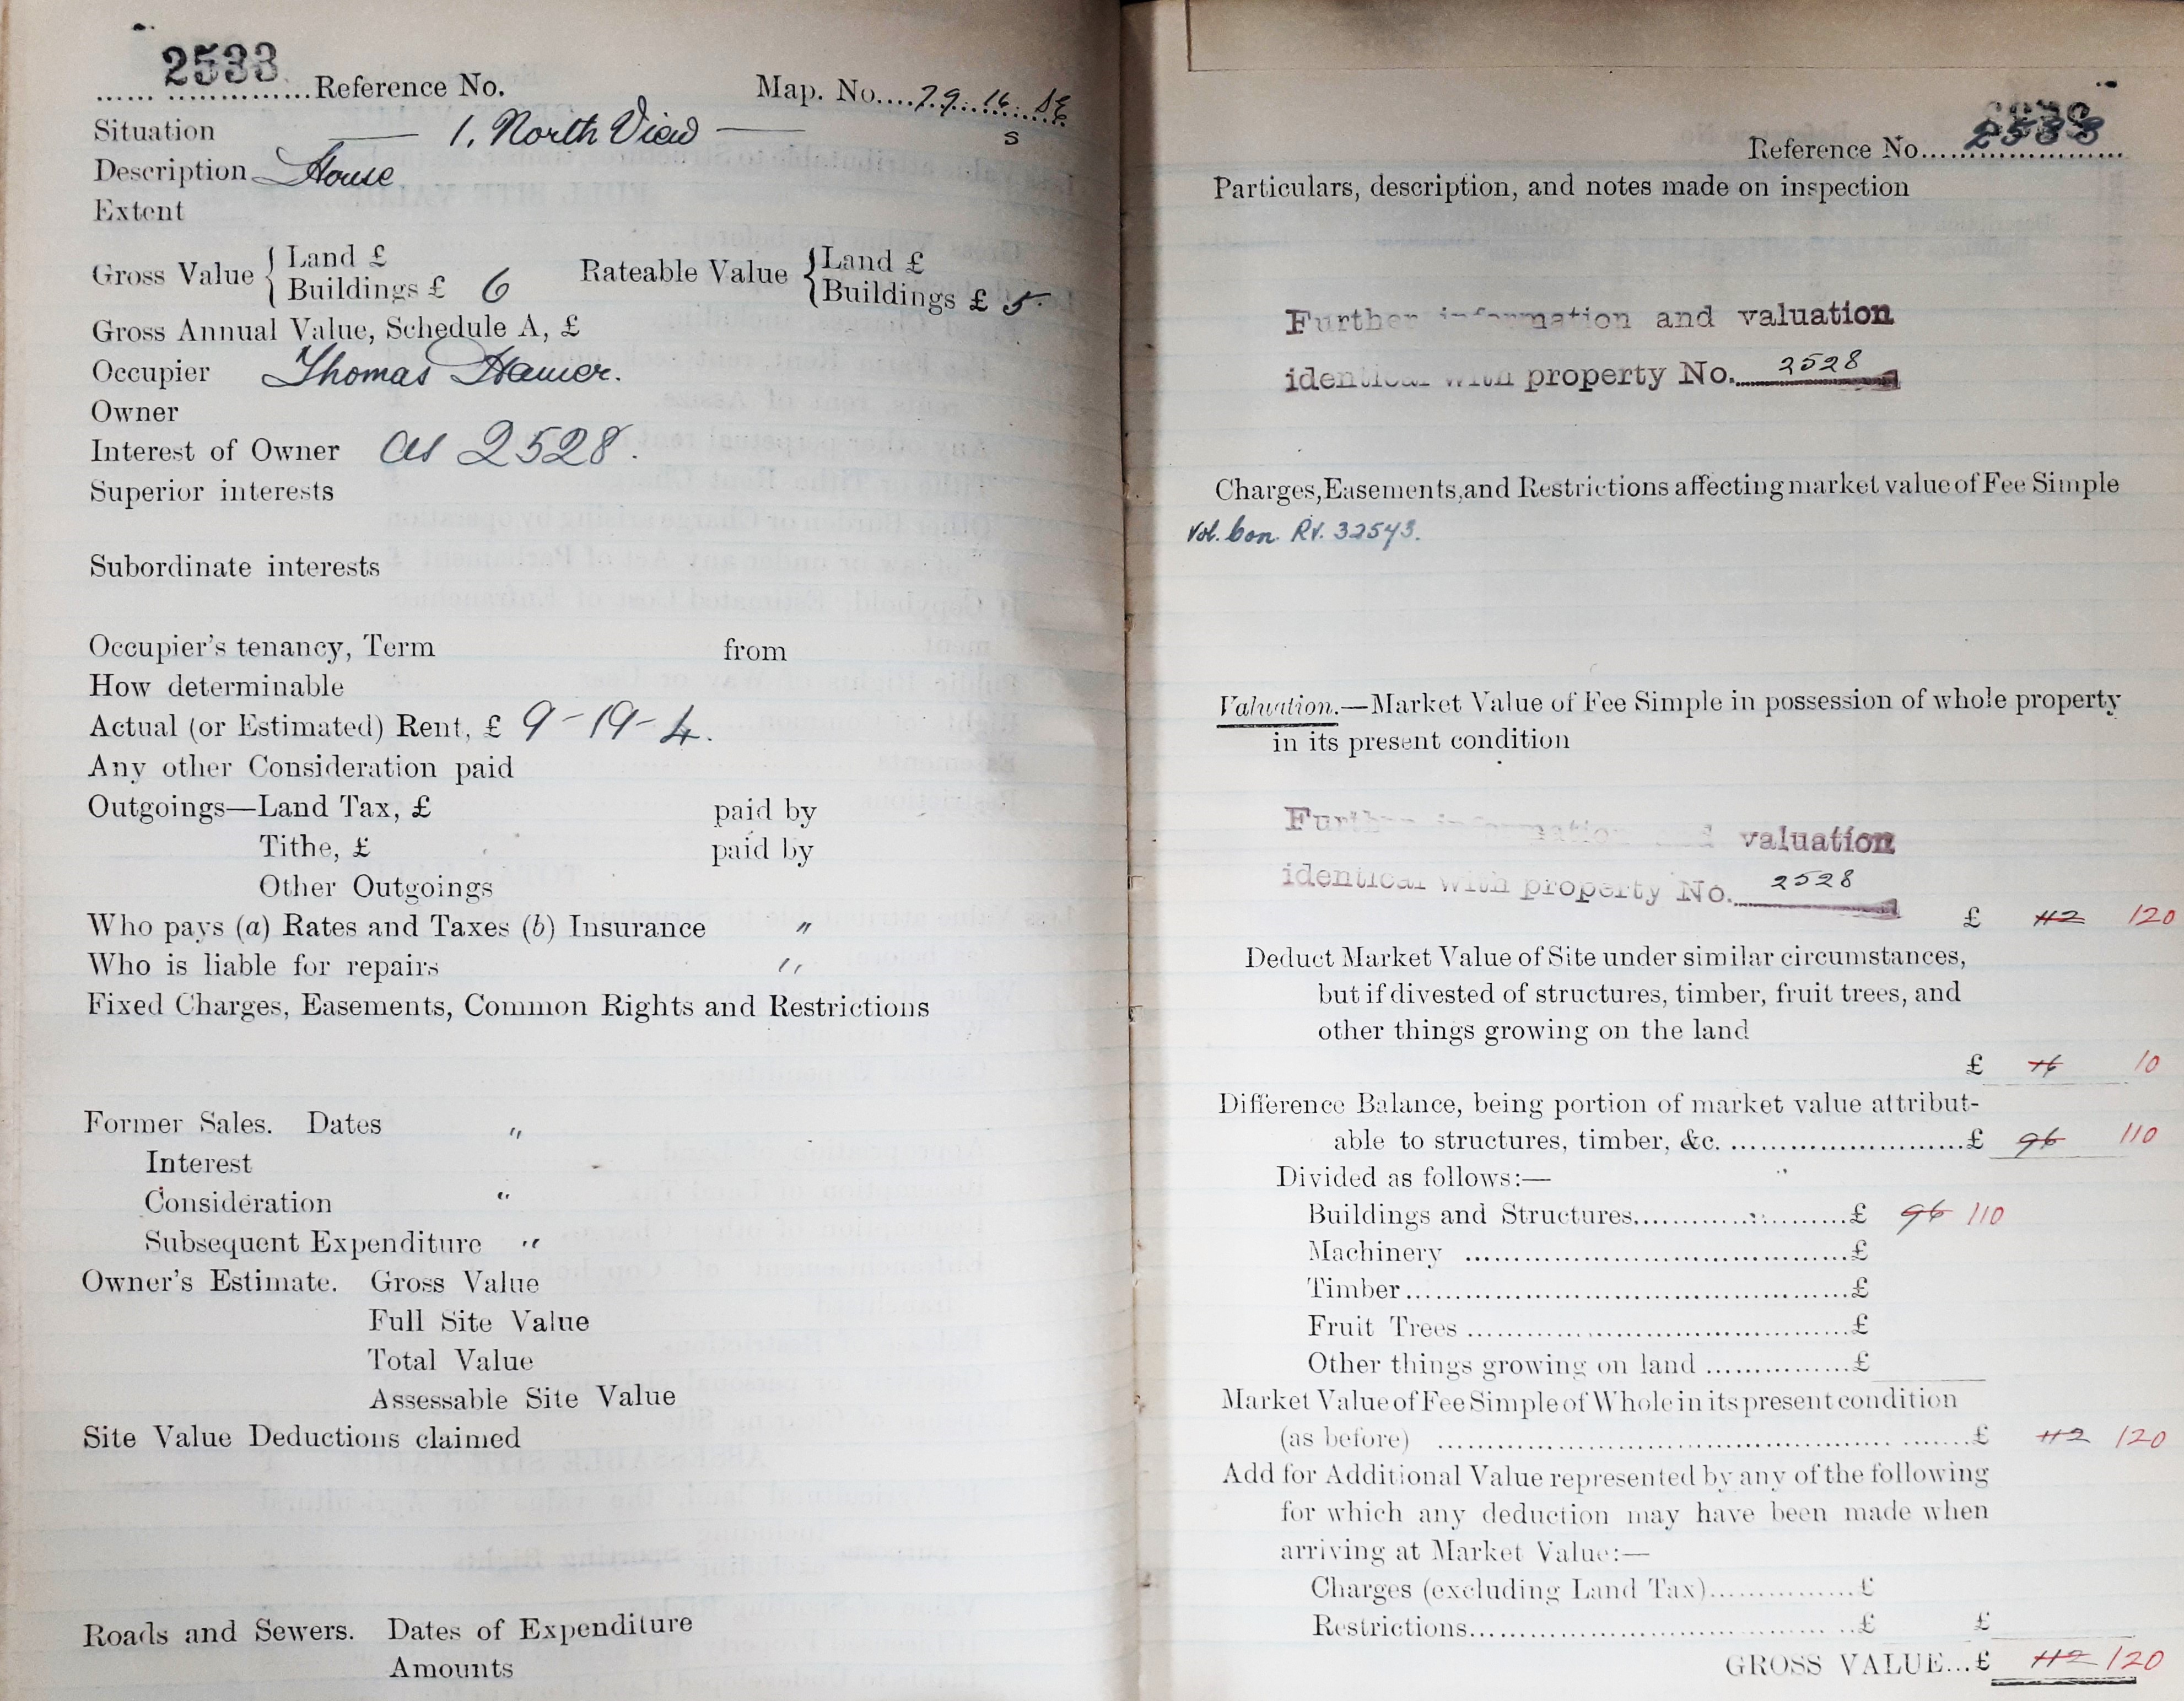 2533
Reference No.
Map. No. 79. 16. SE
S
Situation 1, North View
Description House
Extent
Gross Value { Land £
Buildings £ 6
Rateable Value { Land £
Buildings £ 5
Gross Annual Value, Schedule A, £
Occupier Thomas Hamer.
Owner
Interest of Owner as 2528.
Superior interests
Subordinate interests
Occupier's tenancy, Term from
How determinable
Actual (or Estimated) Rent, £ 9-19-4.
Any other Consideration paid
Outgoings—Land Tax, £ paid by
Tithe, £ paid by
Other Outgoings
Who pays (a) Rates and Taxes (b) Insurance "
Who is liable for repairs "
Fixed Charges, Easements, Common Rights and Restrictions
Former Sales. Dates "
Interest
Consideration "
Subsequent Expenditure "
Owner's Estimate. Gross Value
Full Site Value
Total Value
Assessable Site Value
Site Value Deductions claimed
Roads and Sewers. Dates of Expenditure
Amounts
Reference No. 2533
Particulars, description, and notes made on inspection
Further information and valuation
identical with property No. 2528
Charges, Easements, and Restrictions affecting market value of Fee Simple
Vol. Con. Rv. 32543.
Valuation.—Market Value of Fee Simple in possession of whole property
in its present condition
Further information and valuation
identical with property No. 2528
£ 112 120
Deduct Market Value of Site under similar circumstances,
but if divested of structures, timber, fruit trees, and
other things growing on the land
£ 16 10
Difference Balance, being portion of market value attribut-
able to structures, timber, &c. £ 96 110
Divided as follows:—
Buildings and Structures £ 96 110
Machinery £
Timber £
Fruit Trees £
Other things growing on land £
Market Value of Fee Simple of Whole in its present condition
(as before) £ 112 120
Add for Additional Value represented by any of the following
for which any deduction may have been made when
arriving at Market Value:—
Charges (excluding Land Tax) £
Restrictions £ £
GROSS VALUE... £ 112 120